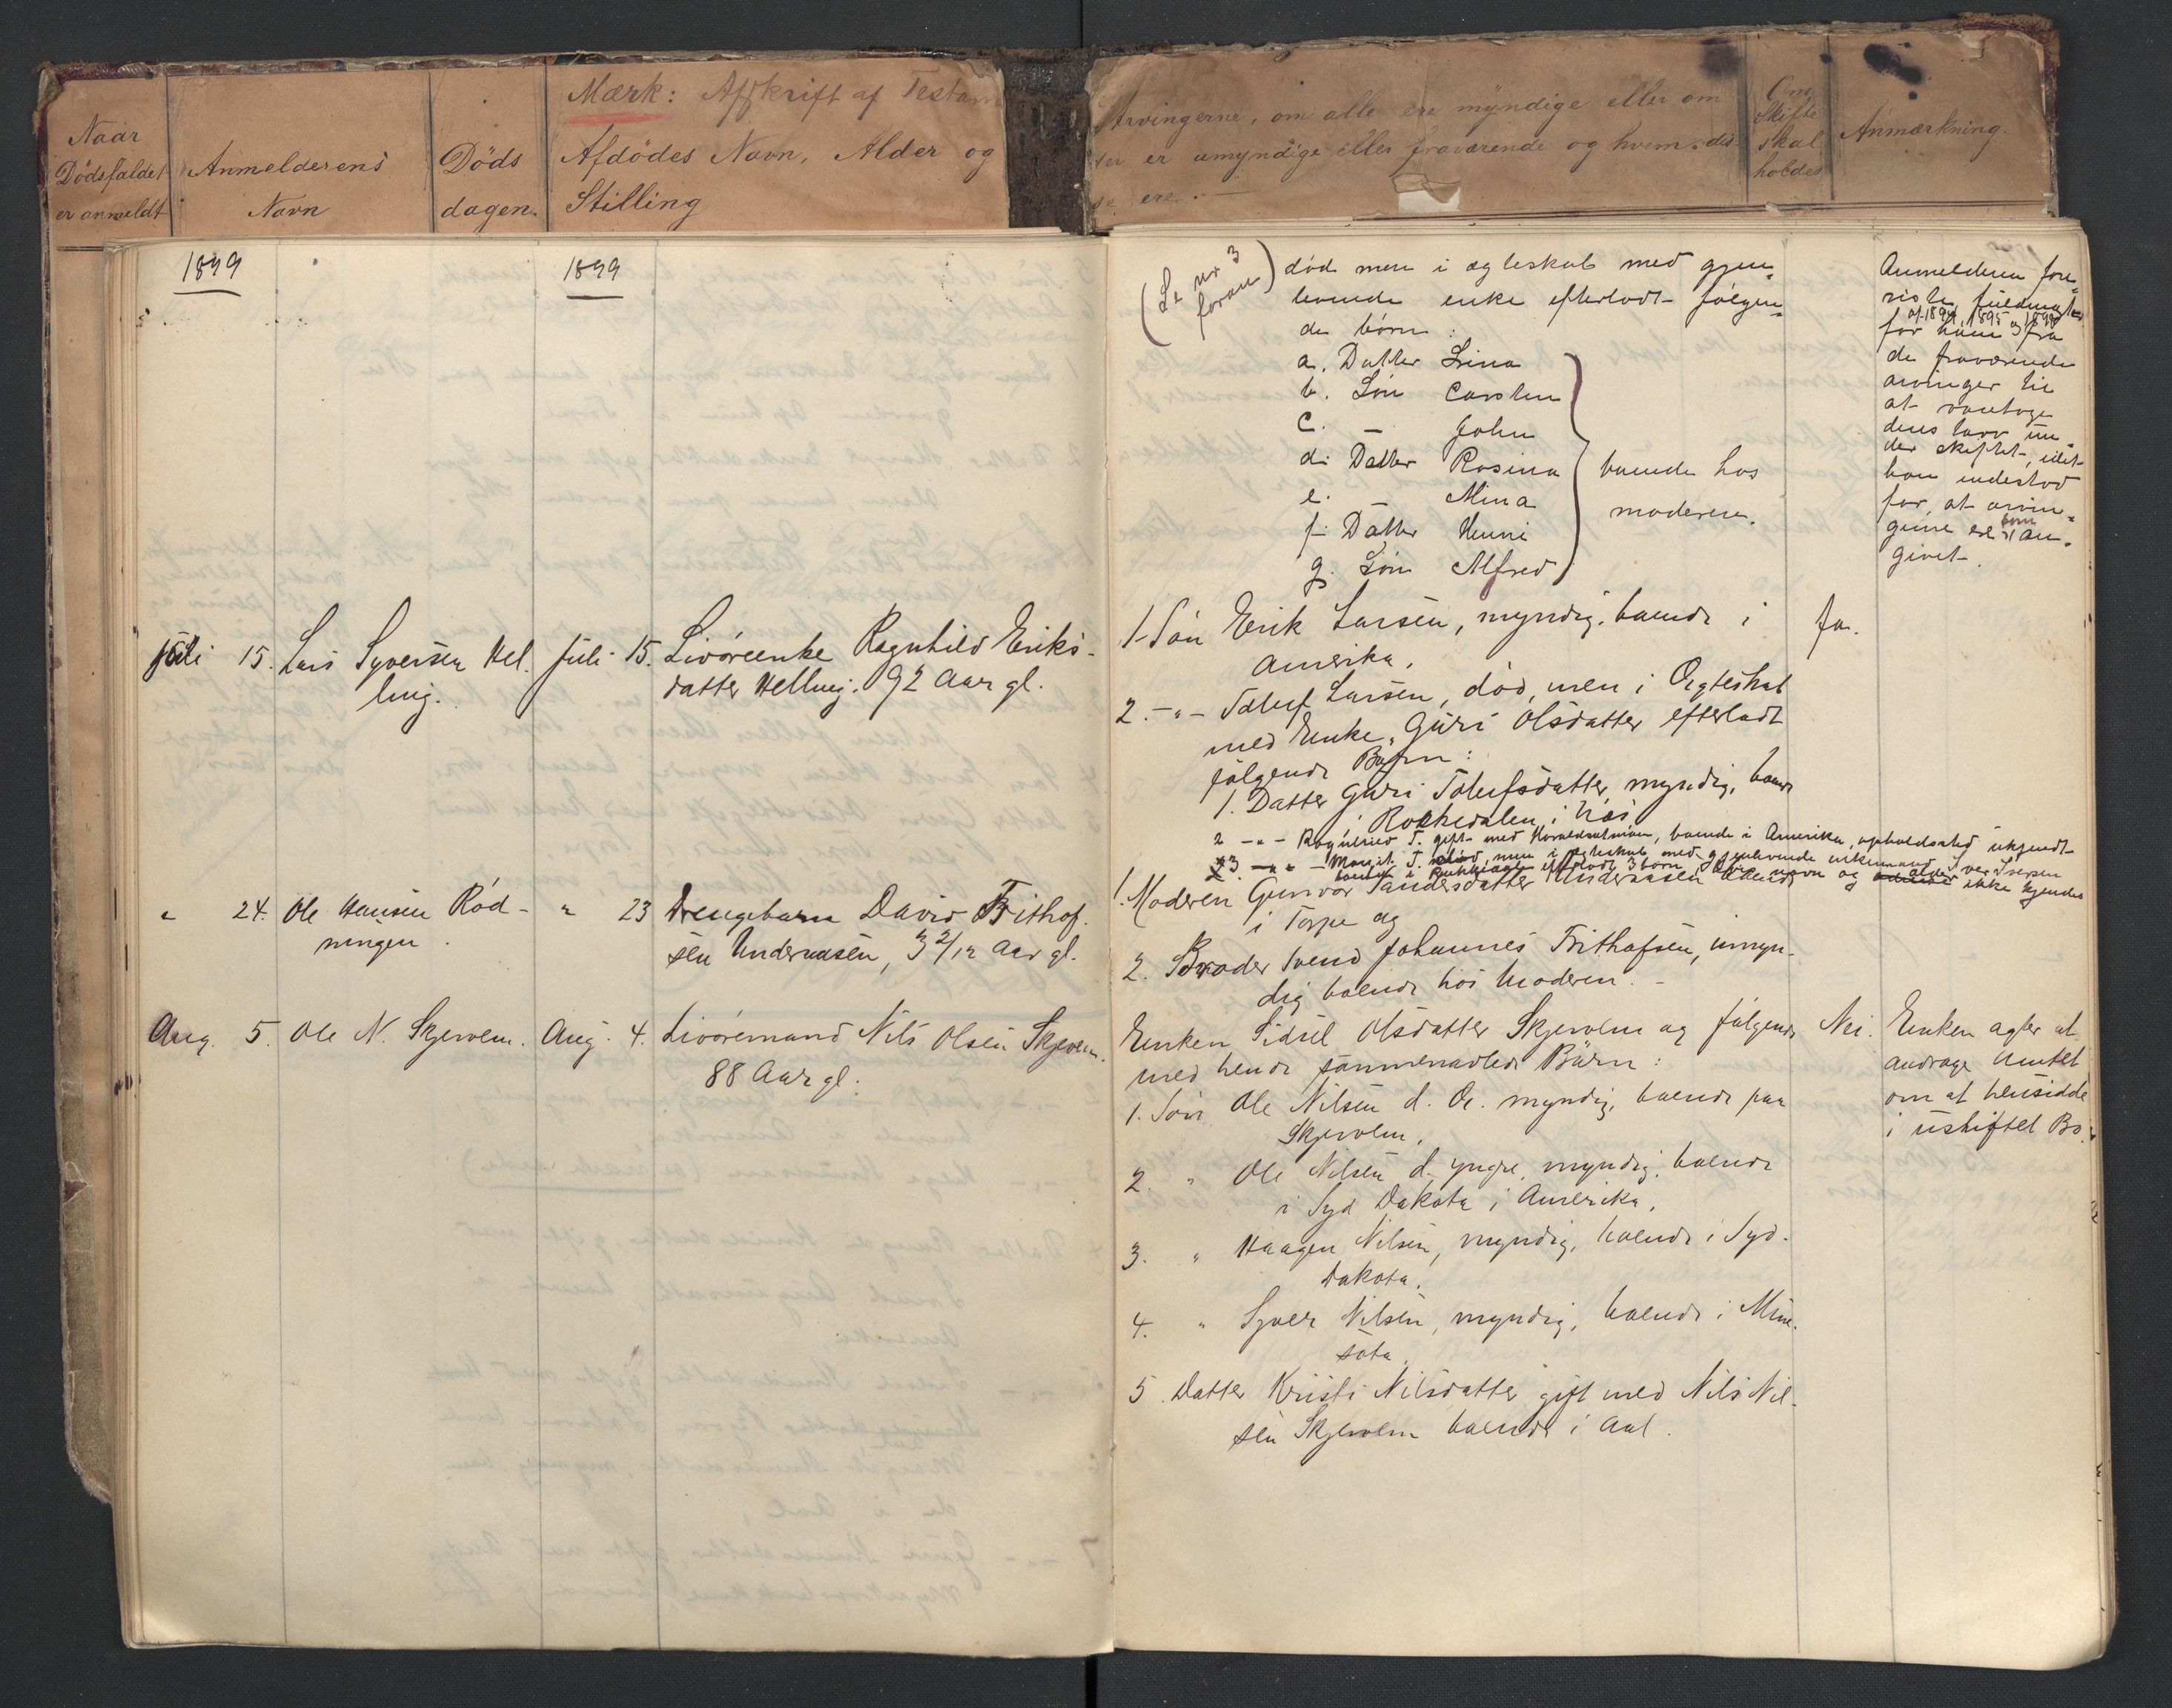 Mærk: Afskrift af Testam
Naar
Dödsfaldet
er anmeldt
Anmelderens
Navn
Döds
dagen.
Afdödes Navn, Alder og
Stilling
Arvingerne, om alle ere myndige eller om
er umyndige eller fraværende og hvem dis-
se ere.
Om
Skifte
skal
holdes
Anmærkning.
1899
1899
(Se nr 3
foran)
död men i ægteskab med gjen-
levende enke efterlodt følgen-
de børn:
a. Datter Lina
b. Søn Carsten
c. — John
d. Datter Rosina
e. — Mina
f. Datter Henni
g. Søn Alfred
boende hos
moderen.
Anmelderen fore-
viste fuldmagter
af 1894, 1895 og 1899
for ham fra
de fraværende
arvinger til
at varetage
deres tarv un-
der skiftet, idet
han indestod
for, at arvin-
gerne ere som an-
givet.
Juli 15. Lars Syversen Hel-
ling.
Juli 15. Livöreenke Ragnhild Eriks-
datter Helling. 92 Aar gl.
1. Sön Erik Larsen, myndig, boende i
Amerika.
2. -"- Tolluf Larsen, död, men i Ægteskab
med Enke, Guri Olsdatter efterladt
følgende Børn:
1. Datter Guri Tolufsdatter, myndig, boende
i Rokkedalen, i Hol
2 -"- Ragnhild T. gift med boende i Amerika, opholdssted ukjendt
3. -"- Margit T. död, men i ægteskab med gjenlevende enkemand Iver Iversen
boende i efterladt 3 börn hvis navn og alder ikke kjendes
Ja.
" 24. Ole Hansen Röd-
ningen.
" 23 Drengebarn David Frithof-
sen Underaasen, 3 2/12 Aar gl.
1. Moderen Gunvor Sandersdatter Underaasen boende
i Torpe og
2. Broder Svend Johannes Frithofsen, umyn-
dig boende hos Moderen. -
Aug. 5. Ole N. Skjervem.
Aug. 4. Livöremand Nils Olsen Skjervem.
88 Aar gl.
Enken Sidsel Olsdatter Skjervem og følgende
med hende sammenavlede Börn:
1. Sön Ole Nilsen d. Æ. myndig, boende paa
Skjervem.
2. " Ole Nilsen d. yngre, myndig, boende
i Syd Dakota i Amerika.
3. " Haagen Nilsen, myndig, boende i Syd-
Dakota.
4. " Syver Nilsen, myndig, boende i Mine-
sota.
5. Datter Kristi Nilsdatter gift med Nils Nil-
sen Skjervem boende i Aal.
Nei.
Enken agter at
andrage Amtet
om at hensidde
i uskiftet Bo.